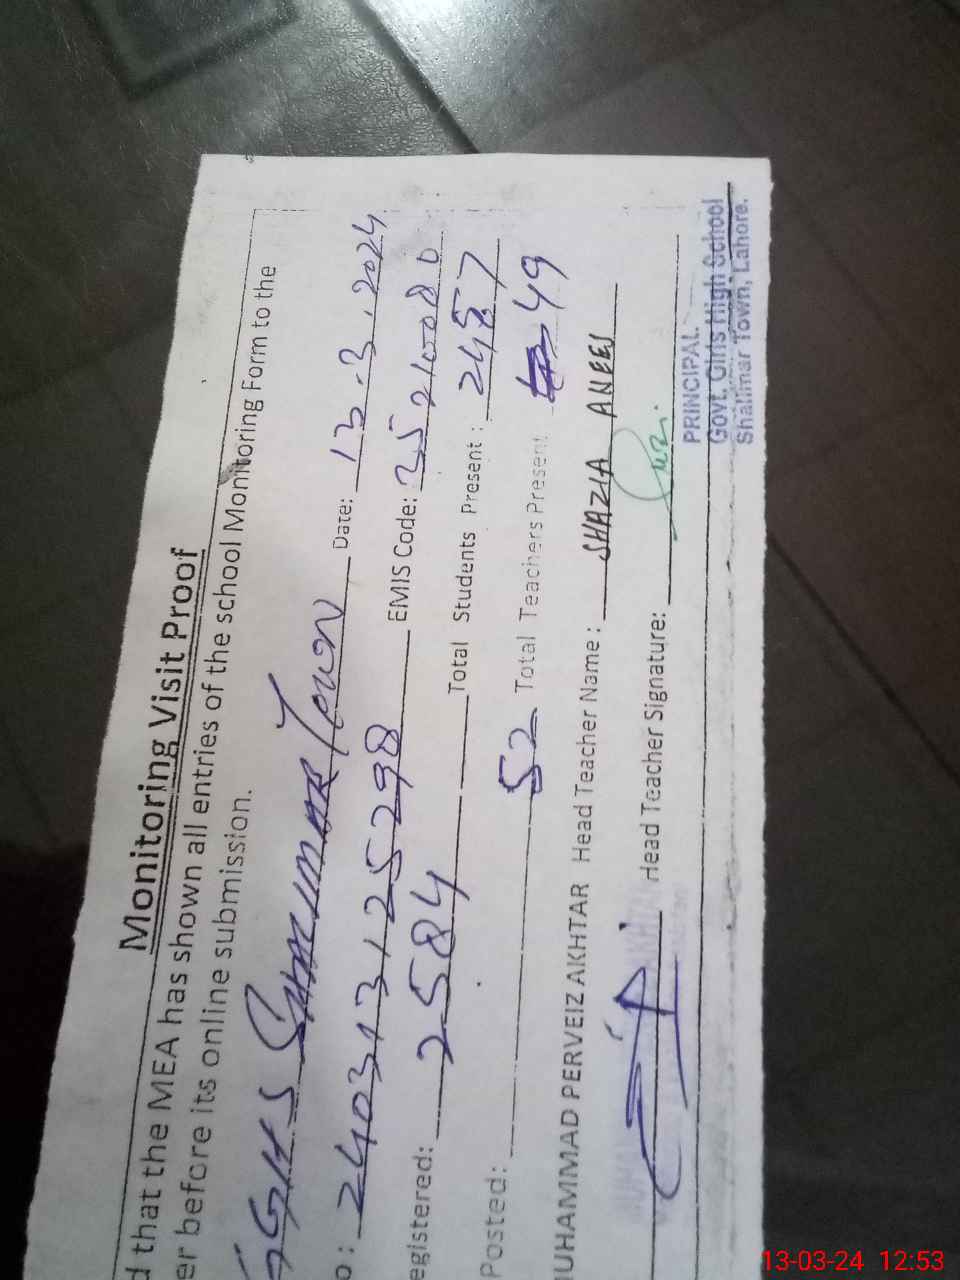 Monitoring Visit Proof
d that the MEA has shown all entries of the school Monitoring Form to the
er before its online submission.
GGHS Shalimar Town Date: 13.3.2024
o: 240313125298 EMIS Code: 35210080
egistered: 2584 Total Students Present: 2487
Posted: 52 Total Teachers Present 49
MUHAMMAD PERVEIZ AKHTAR Head Teacher Name: SHAZIA ANEES
Head Teacher Signature:
PRINCIPAL
Govt. Girls High School
Shalimar Town, Lahore.
13-03-24 12:53